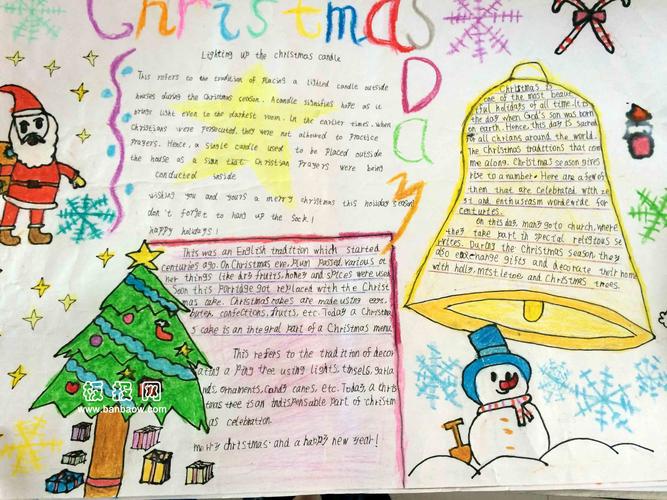 Christmas
Day
Lighting up the christmas candle
This refers to the tradition of Placing a lighted candle outside
houses during the Christmas season. A candle signifies hope as it
brings light even to the darkest room. In the earlier times, when
Christians were persecuted, they were not allowed to practice
Prayers. Hence, a single candle used to be placed outside
the house as a sign that Christian Prayers were being
conducted inside
wishing you and yours a merry christmas this holiday season
don't forget to hang up the sock!
happy holidays!
Christmas is
one of the most beaut
iful holidays of all time. It is
the day when God's son was born
on earth. Hence, this day is sacred
to all chrtians around the world.
The Christmas traditions that com
me along. Christmas season gives
rise to a number. Here are a few of
them that are celebrated with ze
st and enthusiasm worldwide for
centurtes.
On this day, many go to church, where
they take part in special religious se
rvices. During the Christmas season, they
also exchange gifts and decorate their home
with holly, mistletoe and Christmas trees.
This was an English tradition which started
centuries ago. On Christmas eve, Plum Passed, various ot
her things like dry fruits, honey and spices were used
Soon this Porridge got replaced with the Christ
mas cake. Christmas cakes are made using eggs,
butter, confections, fruits, etc. Today a Christma
s cake is an integral part of a Christmas menu
This refers to the tradition of decor
ating a Ping tree using lights, tinsels, garla
nds, ornaments, candy canes, etc. Today, a Chris
tmas tree is an indispensable part of christm
as celebration
merry christmas and a happy new year!
板报网
www.banbaow.com